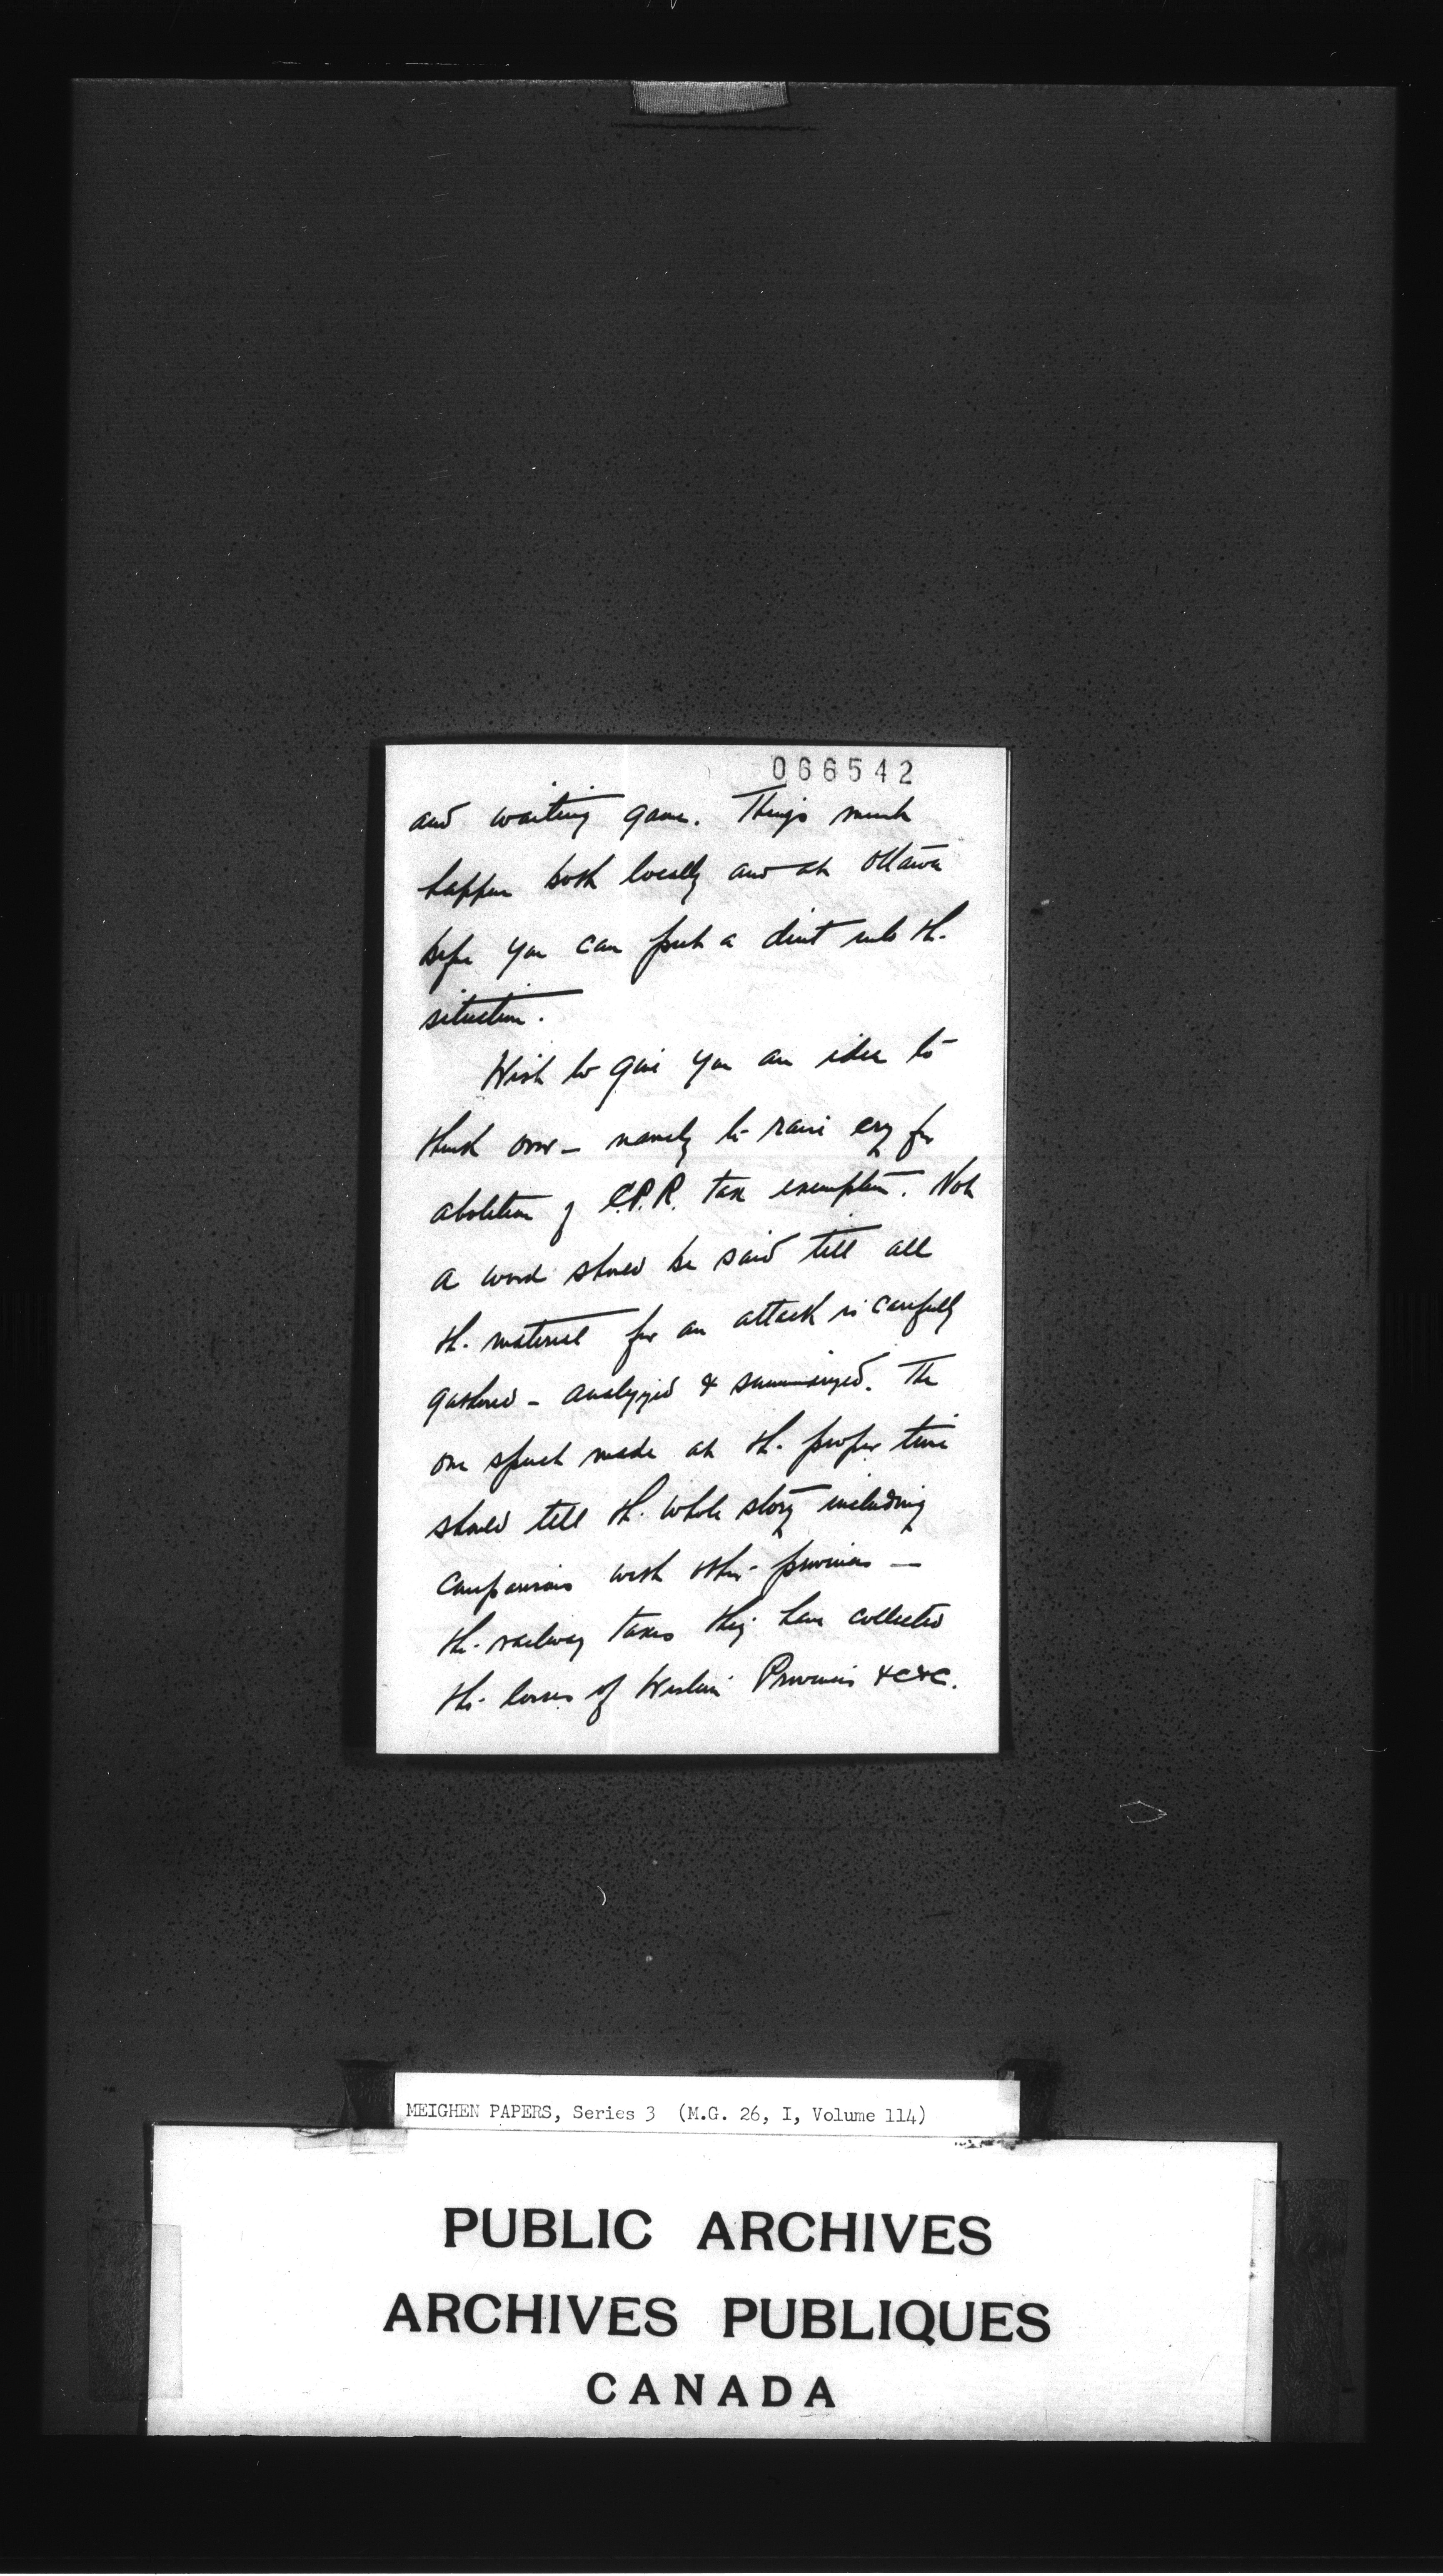 066542
and waiting game. Things must
happen both locally and at Ottawa
before you can put a dint into th.
situation.
Wish to give you an idea to
think over - namely to raise cry for
abolition of C.P.R. tax exemption. Not
a word should be said till all
th. material for an attack is carefully
gathered - analyzed & summarized. The
one speech made at th. proper time
should tell th. whole story including
comparisons with other provinces -
th. railway taxes they have collected
th. losses of Western Provinces &c&c.
MEIGHEN PAPERS, Series 3 (M.G. 26, I, Volume 114)
PUBLIC ARCHIVES
ARCHIVES PUBLIQUES
CANADA